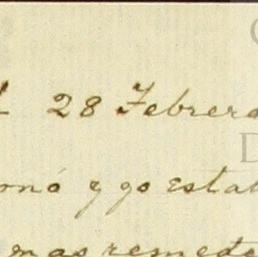 28 Febrero
onó y yo estab
mas remede